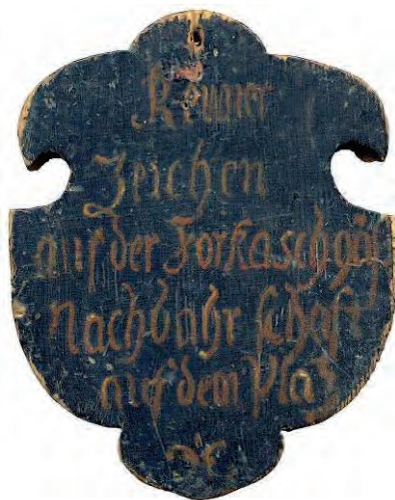 Zeichen
auf der Forkaschgäß
Nachbahrschaft
auf dem Plaz